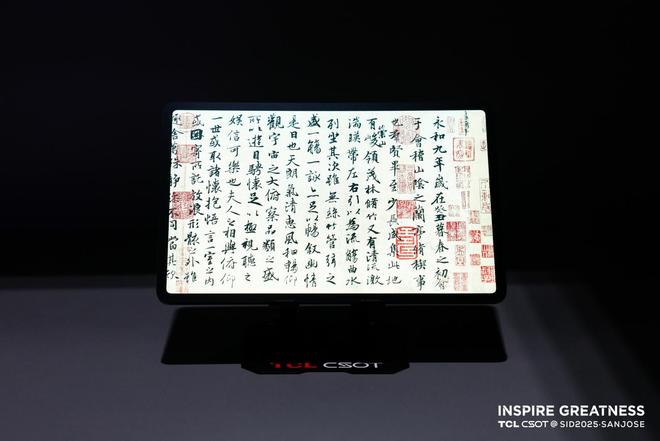 永和九年歲在癸丑暮春之初會
于會稽山陰之蘭亭脩稧事
也羣賢畢至少長咸集此地
有崇山峻領茂林脩竹又有清流激
湍暎帶左右引以為流觴曲水
列坐其次雖無絲竹管弦之
盛一觴一詠亦足以暢敘幽情
是日也天朗氣清惠風和暢仰
觀宇宙之大俯察品類之盛
所以遊目騁懷足以極視聽之
娛信可樂也夫人之相與俯仰
一世或取諸懷抱悟言一室之內
或因寄所託放浪形骸之外雖
舍萬殊靜不同當其欣
TCL CSOT
INSPIRE GREATNESS
TCL CSOT @ SID2025·SANJOSE